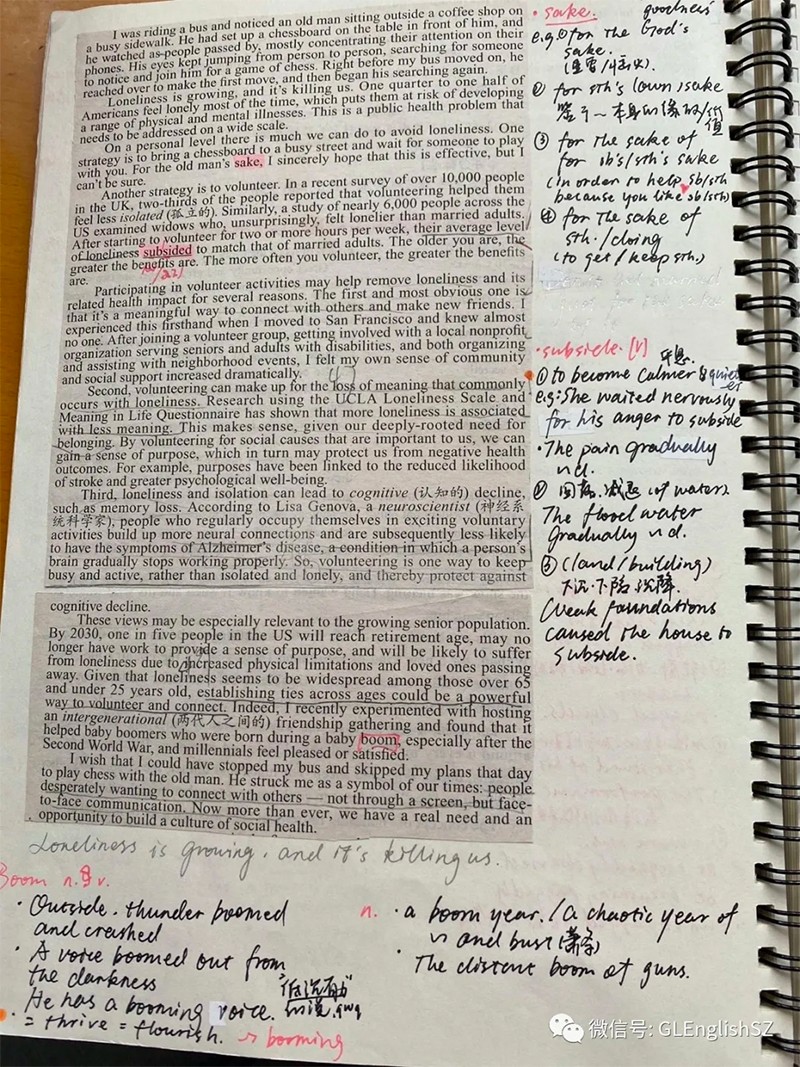 I was riding a bus and noticed an old man sitting outside a coffee shop on
a busy sidewalk. He had set up a chessboard on the table in front of him, and
he watched as people passed by, mostly concentrating their attention on their
phones. His eyes kept jumping from person to person, searching for someone
to notice and join him for a game of chess. Right before my bus moved on, he
reached over to make the first move, and then began his searching again.
Loneliness is growing, and it's killing us. One quarter to one half of
Americans feel lonely most of the time, which puts them at risk of developing
a range of physical and mental illnesses. This is a public health problem that
needs to be addressed on a wide scale.
On a personal level there is much we can do to avoid loneliness. One
strategy is to bring a chessboard to a busy street and wait for someone to play
with you. For the old man's sake, I sincerely hope that this is effective, but I
can't be sure.
Another strategy is to volunteer. In a recent survey of over 10,000 people
in the UK, two-thirds of the people reported that volunteering helped them
feel less isolated (孤立的). Similarly, a study of nearly 6,000 people across the
US examined widows who, unsurprisingly, felt lonelier than married adults.
After starting to volunteer for two or more hours per week, their average level
of loneliness subsided to match that of married adults. The older you are, the
greater the benefits are. The more often you volunteer, the greater the benefits
are.
Participating in volunteer activities may help remove loneliness and its
related health impact for several reasons. The first and most obvious one is
that it's a meaningful way to connect with others and make new friends. I
experienced this firsthand when I moved to San Francisco and knew almost
no one. After joining a volunteer group, getting involved with a local nonprofit
organization serving seniors and adults with disabilities, and both organizing
and assisting with neighborhood events, I felt my own sense of community
and social support increased dramatically.
Second, volunteering can make up for the loss of meaning that commonly
occurs with loneliness. Research using the UCLA Loneliness Scale and
Meaning in Life Questionnaire has shown that more loneliness is associated
with less meaning. This makes sense, given our deeply-rooted need for
belonging. By volunteering for social causes that are important to us, we can
gain a sense of purpose, which in turn may protect us from negative health
outcomes. For example, purposes have been linked to the reduced likelihood
of stroke and greater psychological well-being.
Third, loneliness and isolation can lead to cognitive (认知的) decline,
such as memory loss. According to Lisa Genova, a neuroscientist (神经系
统科学家), people who regularly occupy themselves in exciting voluntary
activities build up more neural connections and are subsequently less likely
to have the symptoms of Alzheimer's disease, a condition in which a person's
brain gradually stops working properly. So, volunteering is one way to keep
busy and active, rather than isolated and lonely, and thereby protect against
cognitive decline.
These views may be especially relevant to the growing senior population.
By 2030, one in five people in the US will reach retirement age, may no
longer have work to provide a sense of purpose, and will be likely to suffer
from loneliness due to increased physical limitations and loved ones passing
away. Given that loneliness seems to be widespread among those over 65
and under 25 years old, establishing ties across ages could be a powerful
way to volunteer and connect. Indeed, I recently experimented with hosting
an intergenerational (两代人之间的) friendship gathering and found that it
helped baby boomers who were born during a baby boom, especially after the
Second World War, and millennials feel pleased or satisfied.
I wish that I could have stopped my bus and skipped my plans that day
to play chess with the old man. He struck me as a symbol of our times: people
desperately wanting to connect with others — not through a screen, but face-
to-face communication. Now more than ever, we have a real need and an
opportunity to build a culture of social health.
Loneliness is growing, and it's killing us.
· sake. goodness
e.g. ① for the God's
sake.
② for sth's (own) sake
③ for the sake of
for sb's/sth's sake
(in order to help sb/sth
because you like sb/sth)
④ for the sake of
sth./doing
(to get/keep sth.)
· subside. [v] 平息
① to become calmer & quieter
e.g: She waited nervously
for his anger to subside
· The pain gradually
~d.
② 回落. 减退 (of water).
The flood water
gradually ~d.
③ (land/building)
下沉·下陷·沉降.
Weak foundations
caused the house to
subside.
Boom n.& v.
· Outside. thunder boomed
and crashed
· A voice boomed out from
the darkness
He has a booming voice.
= thrive = flourish. is booming
n. · a boom year. / a chaotic year of
~ and bust (萧条)
· The distant boom of guns.
微信号: GLEnglishSZ